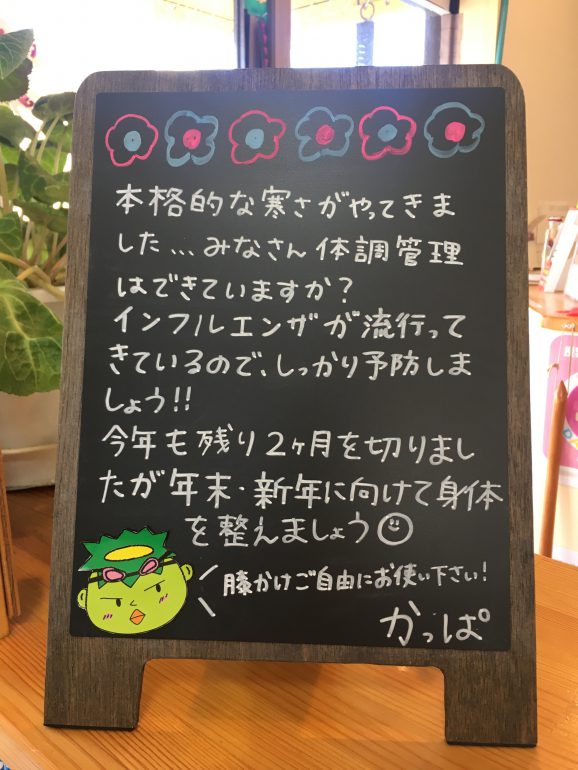 本格的な寒さがやってきま
した…みなさん体調管理
はできていますか？
インフルエンザが流行って
きているので、しっかり予防しま
しょう!!
今年も残り2ヶ月を切りまし
たが年末・新年に向けて身体
を整えましょう☺
膝かけご自由にお使い下さい!
かっぱ